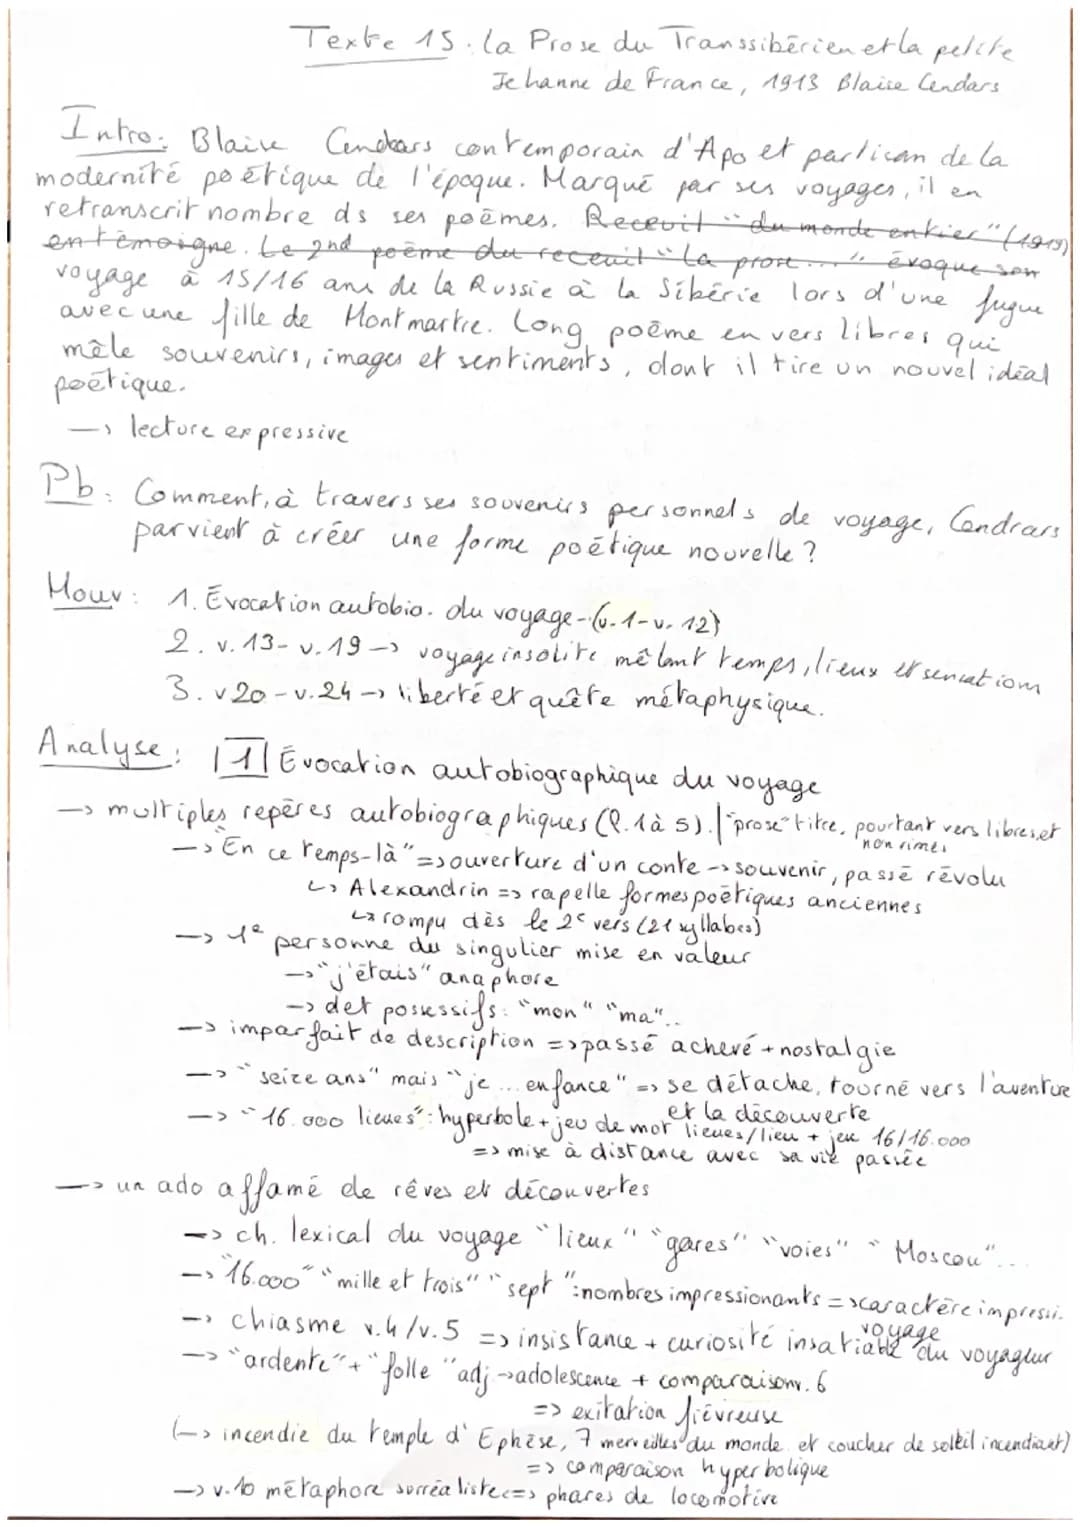 Texte 15 : la Prose du Transsibérien et la petite
Jehanne de France, 1913 Blaise Cendars
Intro : Blaise Cendrars contemporain d'Apo et partisan de la
modernité poétique de l'époque. Marqué par ses voyages, il en
retranscrit nombre ds ses poèmes. Receuil "du monde entier" (1919)
en témoigne. Le 2nd poème du receuil "la prose..." évoque son
voyage à 15/16 ans de la Russie à la Sibérie lors d'une fugue
avec une fille de Montmartre. Long poème en vers libres qui
mêle souvenirs, images et sentiments, dont il tire un nouvel idéal
poétique.
→ lecture expressive
Pb : Comment, à travers ses souvenirs personnels de voyage, Cendrars
parvient à créer une forme poétique nouvelle ?
Mouv : 1. Évocation autobio. du voyage - (v.1-v.12)
2. v.13-v.19 → voyage insolite mêlant temps, lieux et sensations
3. v20-v.24 → liberté et quête métaphysique.
Analyse : |1| Évocation autobiographique du voyage
→ multiples repères autobiographiques (l.1 à 5). | "prose" titre, pourtant vers libres et
non rimés
→ "En ce temps-là" => ouverture d'un conte → souvenir, passé révolu
↳ Alexandrin => rapelle formes poétiques anciennes
↳ rompu dès le 2e vers (21 syllabes)
→ 1e personne du singulier mise en valeur
→ "j'étais" anaphore
→ det possessifs : "mon" "ma"..
→ imparfait de description => passé achevé + nostalgie
→ "seize ans" mais "je ... enfance" => se détache, tourné vers l'aventure
et la découverte
→ "16.000 lieues" : hyperbole + jeu de mot lieues/lieu + jeu 16/16.000
=> mise à distance avec sa vie passée
→ un ado affamé de rêves et découvertes
→ ch. lexical du voyage "lieux" "gares" "voies" "Moscou"...
→ "16.000" "mille et trois" "sept" : nombres impressionants => caractère impressi.
voyage
→ chiasme v.4/v.5 => insistance + curiosité insatiable du voyageur
→ "ardente" + "folle" adj → adolescence + comparaison v.6
=> exitation fiévreuse
(→ incendie du temple d'Ephèse, 7 merveilles du monde et coucher de soleil incendiant)
=> comparaison hyperbolique
→ v.10 métaphore surréaliste => phares de locomotive